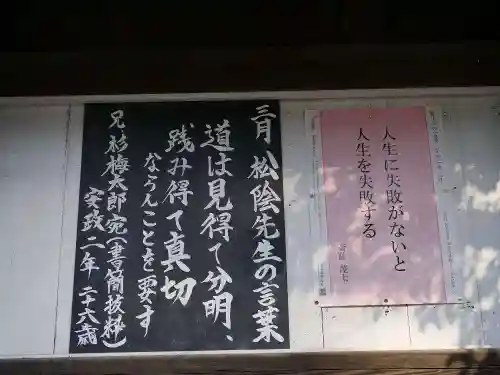 三月 松陰先生の言葉
道は見得て分明、
践み得て真切
ならんことを要す
兄杉梅太郎宛(書簡抜粋)
安政二年 二十六歳
人生に失敗がないと
人生を失敗する
斎藤 茂太